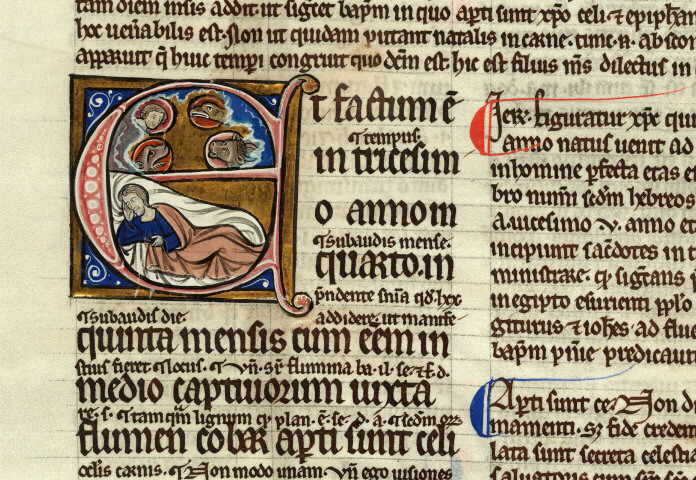 tam diem missis addit ut sigͤret bap̄m in quo aꝑti sunt xp̄o celi ⁊ epiphan
hoc uen̄abilis est. Non ut quidam putant natalis in carne. tunc. n. abscon
apparuit q̄ huic tempi congruit quo dc̄m est. hic est filius m̄s dilectus in
Et factum ē
tempus.
in tricesim
o anno in
subaudis mense.
quarto. in
p̄ndente sn̄ia qd̄ lxx
subaudis die. addidere. ut manife
quinta mensis cum eēm in
stius fieret locus. sr̄ flumina ba. il. se.
medio captiuorum iuxta
re. s. tamqm̄ lignum plan. e. se. d. a.
flumen cobar aꝑti sunt celi
oclis carnis. Non modo unam. vn̄ ego uisiones
Jer̄. figuratur xp̄c qui
anno natus uenit ad
in homine ꝑfecta etas es
bro num̄i scd̄m hebreos
a. uicesimo v. anno et
incipiunt sac̄dotes in t
ministrare. sig̅tans
in egipto esurienti ppl̄o
giturus ⁊ iohēs ad flu
bap̄m pn̄ie predicaui
Aꝑti sunt ce. Non di
mamenti. s; fide creden
lata sunt secreta celestia